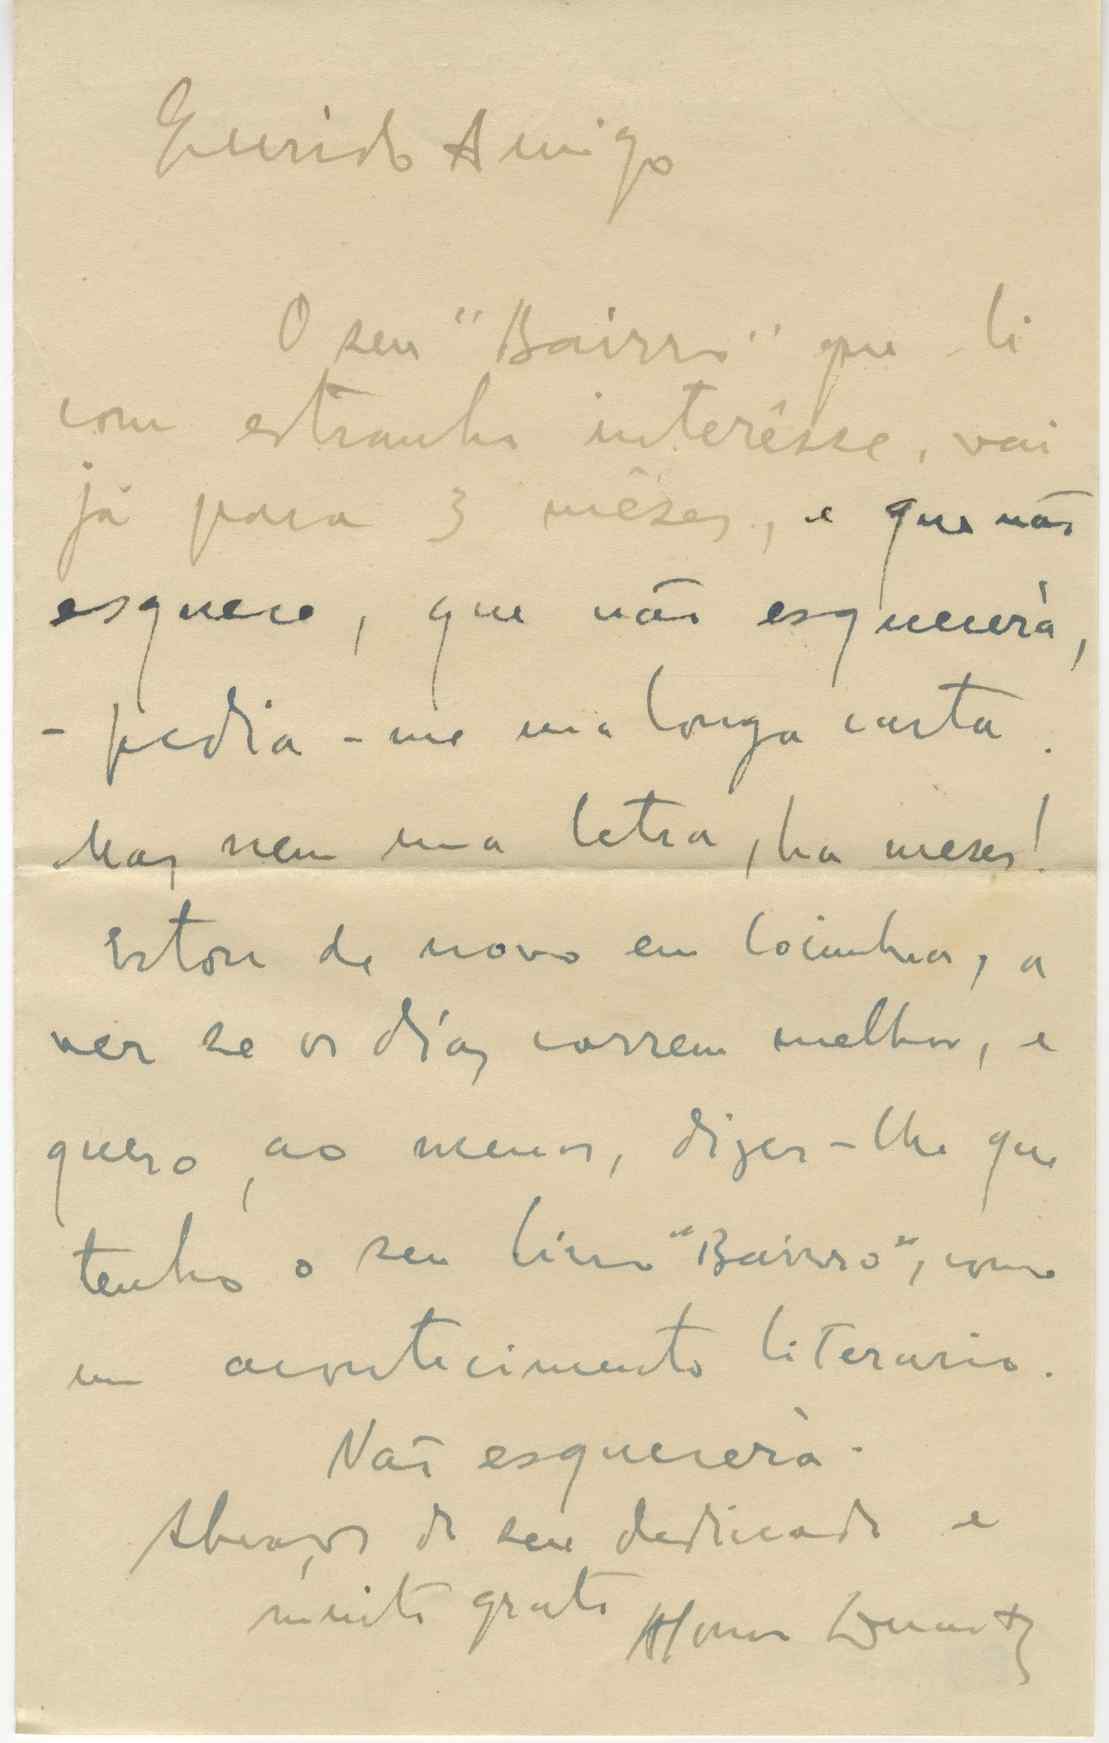 Querido Amigo
O seu "Bairro" que li
com estranho interêsse, vai
já para 3 mêses, e que não
esquece, que não esquecerà,
- pedia-me uma longa carta.
Mas nem uma letra, ha meses!
Estou de novo em Coimbra, a
ver se os días correm melhor, e
quero, ao menos, dizer-lhe que
tenho o seu livro "Bairro", como
um acontecimento literario.
Não esquecerà.
Abraços do seu dedicado e
muito grato Afonso Duarte